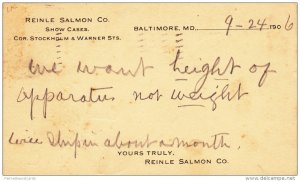 REINLE SALMON CO.
SHOW CASES.
COR. STOCKHOLM & WARNER STS.
BALTIMORE, MD., 9-24 1906
We want height of
apparatus not weight
Will ship in about a month.
YOURS TRULY,
REINLE SALMON CO.